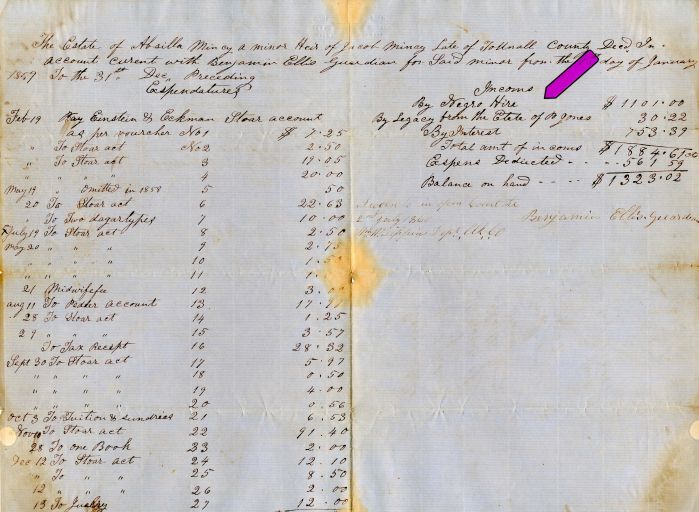 The Estate of Absilla Mincy a minor Heir of Jacob Mincy Late of Tattnall County Decd In
account Curent with Benjamin Ellis Guardian for Said minor from the day of January
1859 To the 31st Dec, Preceding
Expendatures
Feb 19 Pay Einstein & Eckman Stoar account
as per voucher No 1 $ 7.25
" To Stoar act No 2 2.50
" To Stoar act 3 17.05
" " " " 4 20.00
May 19 " omitted in 1858 5 50
20 To Stoar act 6 22.63
" To Two dagartypes 7 10.00
July 19 To Stoar act 8 2.50
May 20 " " " 9 2.75
" " " " 10
" " " " 11
21 Midwifefee 12 3.00
aug 11 To account 13
" 28 To Stoar act 14 1.25
29 " " " 15 3.57
To Tax Recept 16 28.32
Sept 30 To Stoar act 17 5.97
" " " " 18 0.50
" " " " 19 4.00
" " " " 20 0.56
Oct 3 To Tuition & sundries 21 6.53
Nov To Stoar act 22 91.40
28 To one Book 23 2.00
Dec 12 To Stoar act 24 12.10
" To " " 25 8.50
12 " " " 26 2.00
13 To 27 12.00
Incoms
By Negro Hire $ 1101.00
By Legacy from the Estate of Jones 30.22
By Interest 753.39
Total amt of incoms $ 1884.61
Expens Deducted - - - 561 59
Balance on hand - - - $ 1323.02
Benjamin Ellis Guardian